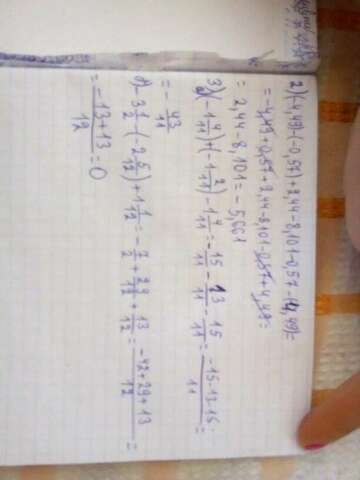 2) (-4,49) - (-0,57) + 2,44 - 8,101 - 0,57 - (-4,49) =
= -4,49 + 0,57 + 2,44 - 8,101 - 0,57 + 4,49 =
= 2,44 - 8,101 = -5,661
3) (-1 4/11) + (-1 2/11) - 1 4/11 = -15/11 - 13/11 - 15/11 = -15-13-15/11 =
= -43/11
-3 1/2 - (-2 5/12) + 1 1/12 = -7/2 + 29/12 + 13/12 = -42+29+13/12 =
= -13+13/12 = 0